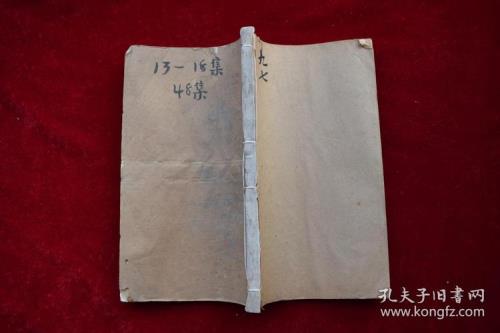 13-18集
48集
九
七
孔夫子旧书网
www.kongfz.com